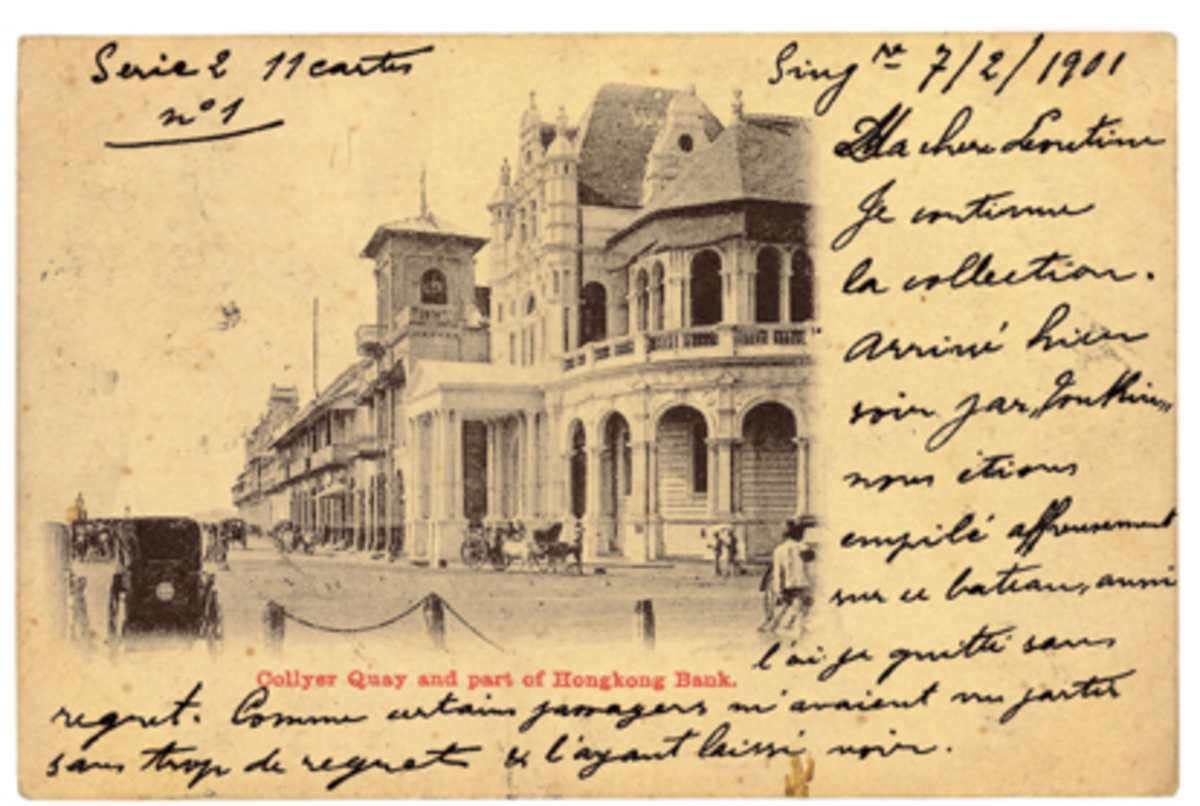 Serie 2 11 cartes
n° 1
Sing re 7/2/1901
Ma chere Leontine
Je continue
la collection.
Arrivé hier
soir par "Tonkin"
nous étions
empilé affreusement
sur ce bateau, aussi
l'ai je quitté sans
Collyer Quay and part of Hongkong Bank.
regret. Comme certains passagers m'avaient vu partir
sans trop de regret & l'ayant laissé voir.